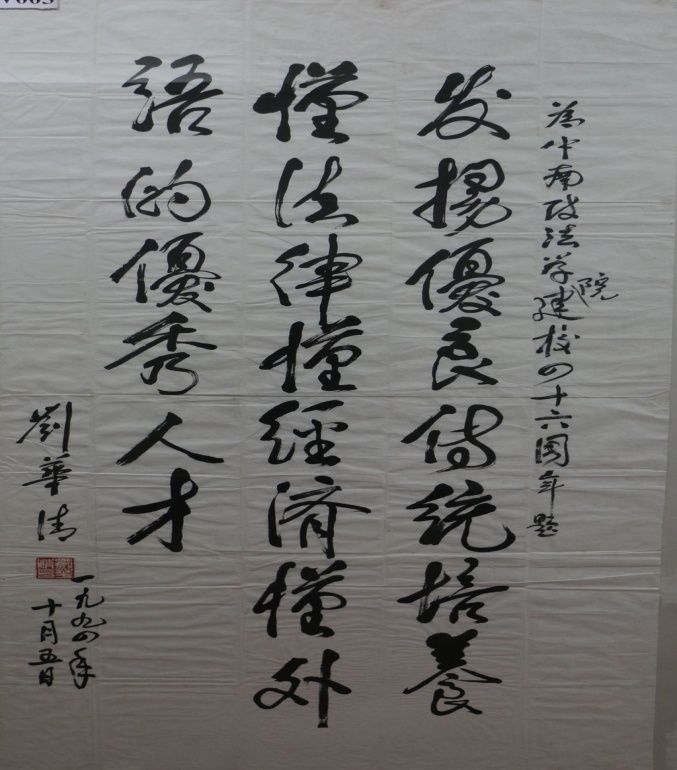 为中南政法学院建校四十六周年题
发揚優良传統培養
懂法律懂經濟懂外
語的優秀人才
劉華清
一九九四年
十月五日